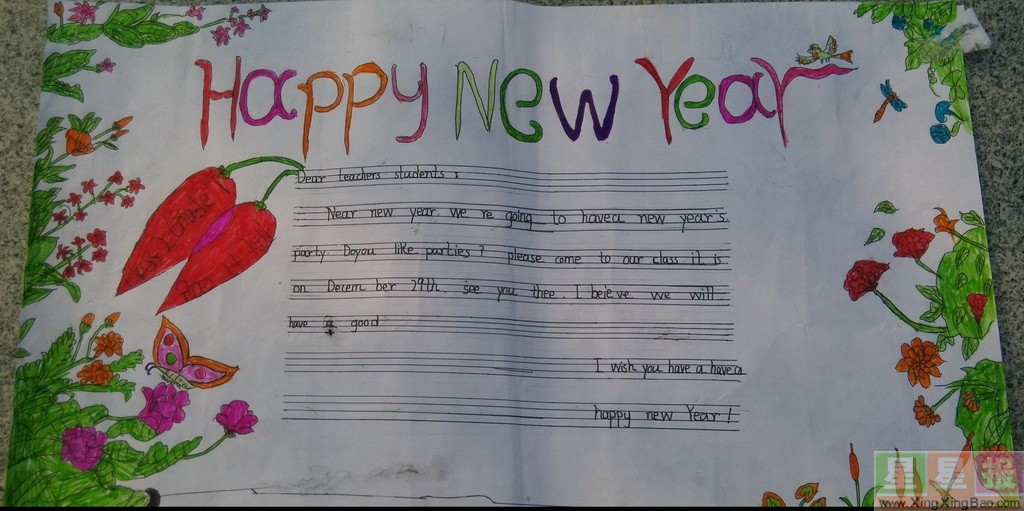 Happy New Year
Dear teachers students:
Near new year. we re going to havea new year's
party Doyou like parties? please come to our class it is
on Decem ber 29th. see you thee. I beieve we will
have a good
I wish you have a have a
happy new Year!
星星报
www.XingXingBao.com